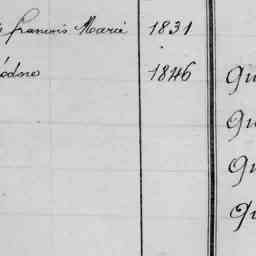 francois Marie 1831
1846 Qu
Qu
Qu
Qu